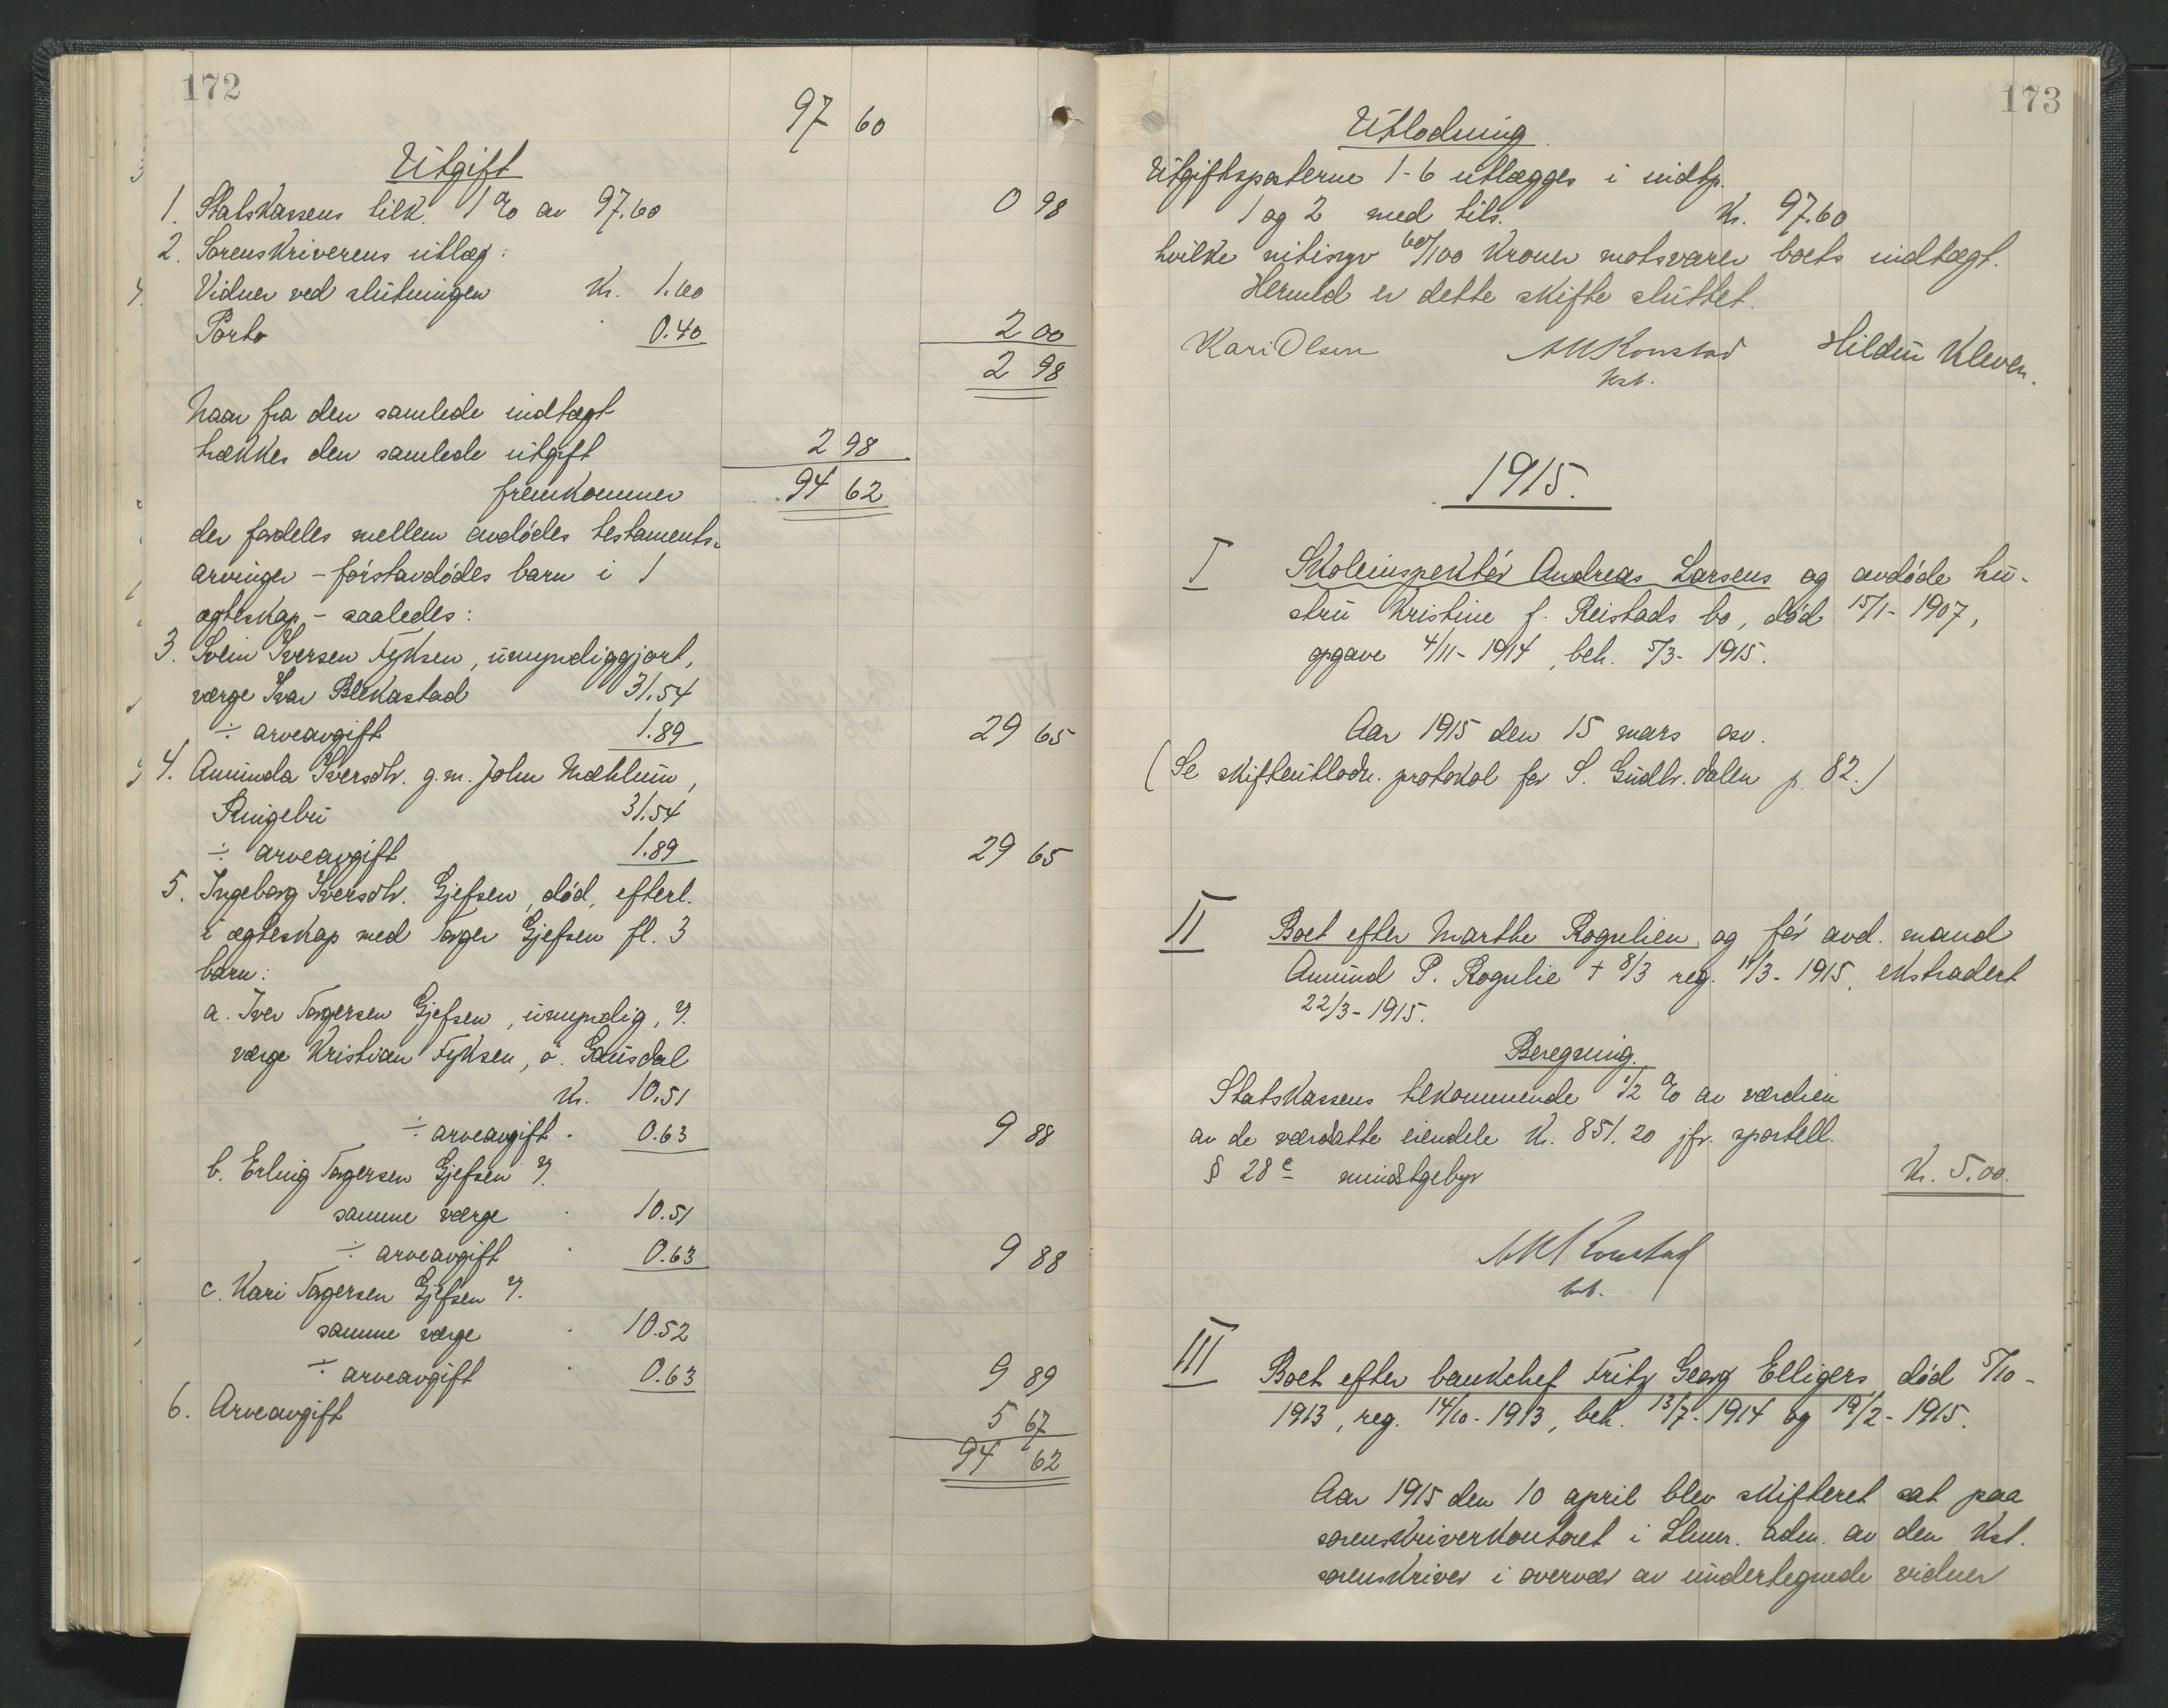 172
97 60
Utgift
1. Statskassens tilk. 1 % av 97.60 0 98
2. Sorenskriverens utlæg:
Vidner ved slutningen Kr. 1.60
Porto " 0.40 2 00
2 98
Naar fra den samlede indtægt
trækkes den samlede utgift 2 98
fremkommer 94 62
der fordeles mellem avdødes testaments-
arvinger - førstavdødes barn i 1
egteskap - saaledes:
3. Svein Iversen Fyksen, umyndiggjort,
værge Ivar Blekastad 31.54
÷ arveavgift 1.89 29 65
4. Aminda Iversdtr. g.m. John Mæhlum,
Ringebu 31.54
÷ arveavgift 1.89 29 65
5. Ingeborg Iversdtr. Gjefsen, død, efterl.
i egteskap med Torger Gjefsen fl. 3
barn:
a. Iver Torgersen Gjefsen, umyndig,
værge Kristian Fyksen, ø. Gausdal
Kr. 10.51
÷ arveavgift " 0.63 9 88
b. Erling Torgersen Gjefsen
samme værge " 10.51
÷ arveavgift " 0.63 9 88
c. Kari Torgersen Gjefsen
samme værge " 10.52
÷ arveavgift " 0.63 9 89
6. Arveavgift 5 67
94 62
173
Utlodning.
Utgiftsposterne 1-6 utlægges i indtp.
1 og 2 med tils. Kr. 97.60
hvilke nitisyv 60/100 Kroner motsvarer boets indtægt.
Hermed er dette skifte sluttet.
Kari Olsen M Konstad Hildur Kleven.
kst.
1915.
I Skoleinspektør Andreas Larsens og avdøde hu-
stru Kristine f. Reistads bo, død 15/1-1907,
opgave 4/11-1914, beh. 5/3-1915.
Aar 1915 den 15 mars osv.
(Se skifteutlodn. protokol for S. Gudbr. dalen p. 82.)
II Boet efter Marthe Rogulien og før avd. mand
Amund P. Rogulie † 8/3 reg. 11/3-1915, ekstradert
22/3-1915.
Beregning.
Statskassens tilkommende 1/2 % av værdien
av de værdsatte eiendele Kr. 851.20 jfr. sportell.
§ 28 c mindstgebyr Kr. 5.00.
M Konstad
kst.
III Boet efter bankchef Fritz Georg Elligers, død 5/10-
1913, reg. 14/10-1913, beh. 13/7-1914 og 19/2-1915.
Aar 1915 den 10 april blev skifteret sat paa
sorenskriverkontoret i Lhmr. adm. av den kst.
sorenskriver i overvær av undertegnede vidner